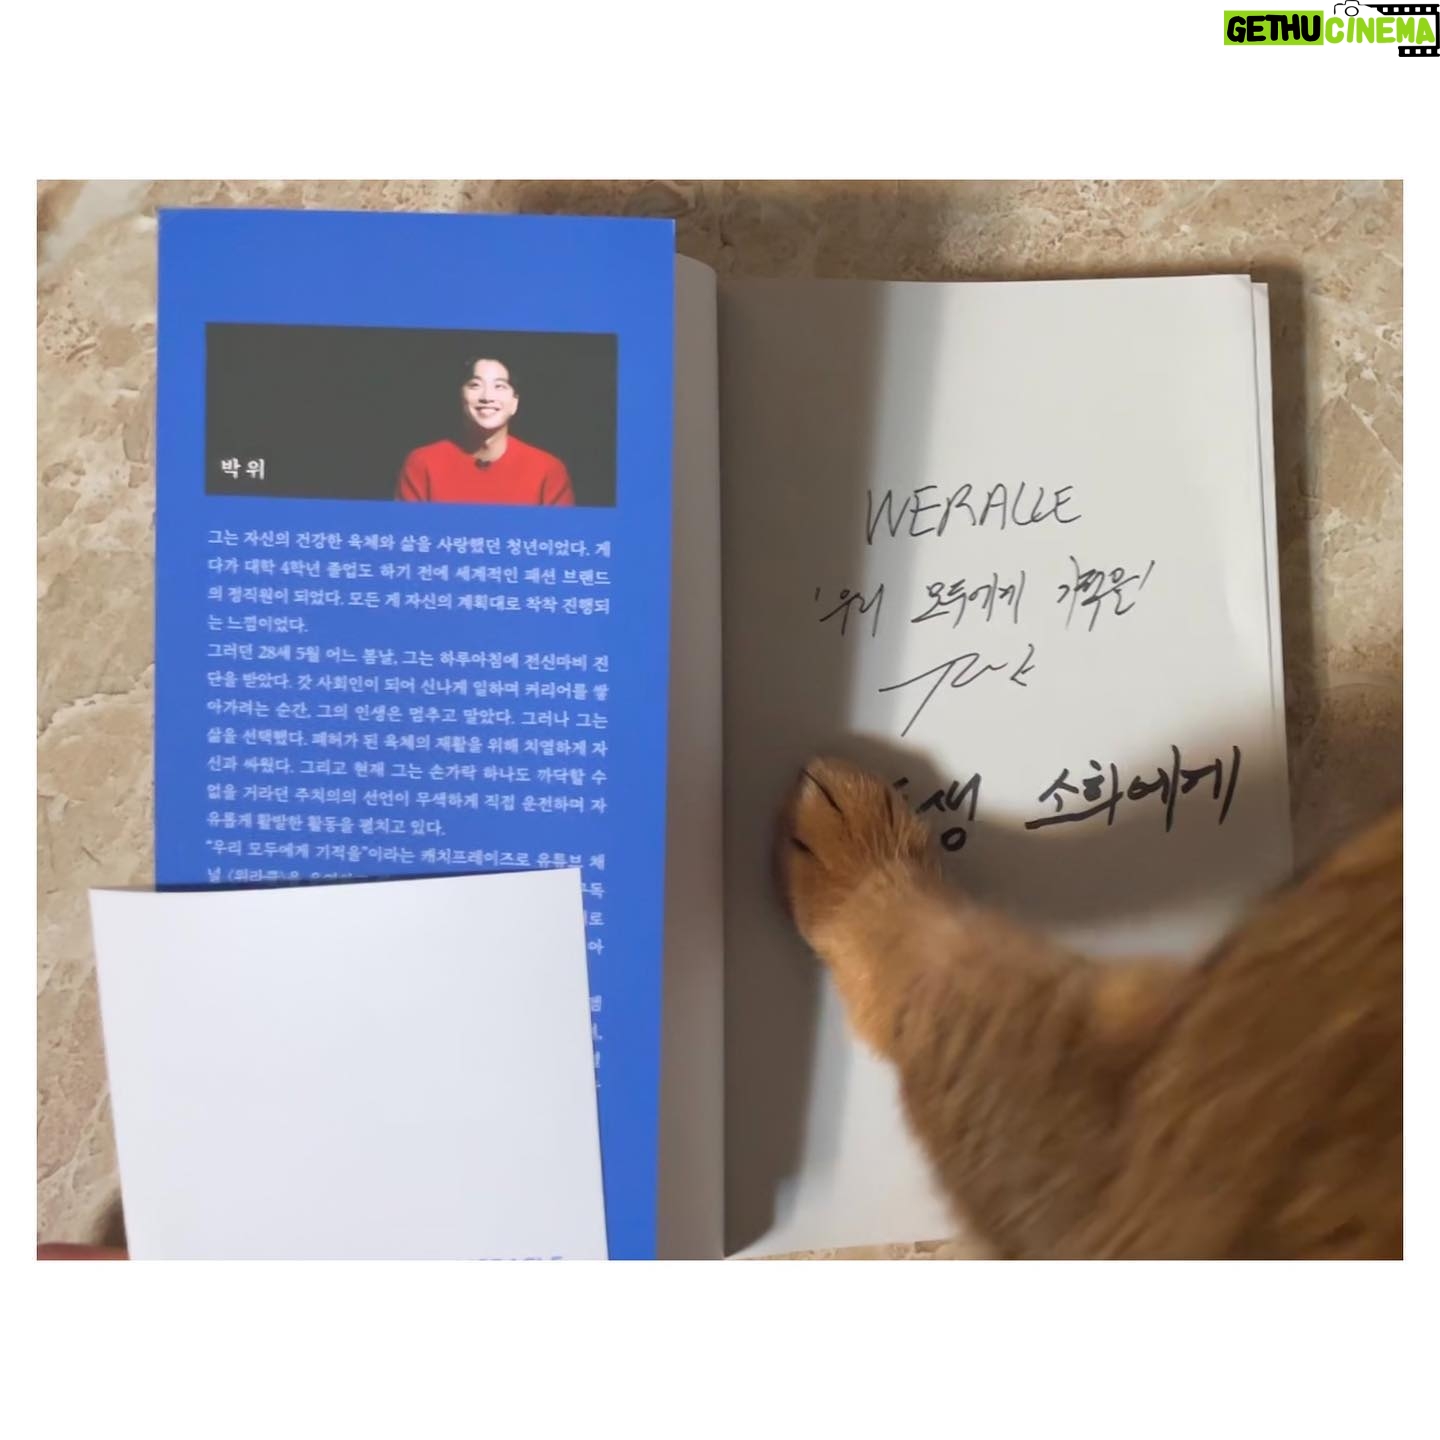 GETHUCINEMA
박 위
그는 자신의 건강한 육체와 삶을 사랑했던 청년이었다. 게
다가 대학 4학년 졸업도 하기 전에 세계적인 패션 브랜드
의 정직원이 되었다. 모든 게 자신의 계획대로 착착 진행되
는 느낌이었다.
그러던 28세 5월 어느 봄날, 그는 하루아침에 전신마비 진
단을 받았다. 갓 사회인이 되어 신나게 일하며 커리어를 쌓
아가려는 순간, 그의 인생은 멈추고 말았다. 그러나 그는
삶을 선택했다. 폐허가 된 육체의 재활을 위해 치열하게 자
신과 싸웠다. 그리고 현재 그는 손가락 하나도 까닥할 수
없을 거라던 주치의의 선언이 무색하게 직접 운전하며 자
유롭게 활발한 활동을 펼치고 있다.
“우리 모두에게 기적을”이라는 캐치프레이즈로 유튜브 채
널 〈위라클〉을
WERACLE
'우리 모두에게 기적을'
소화에게